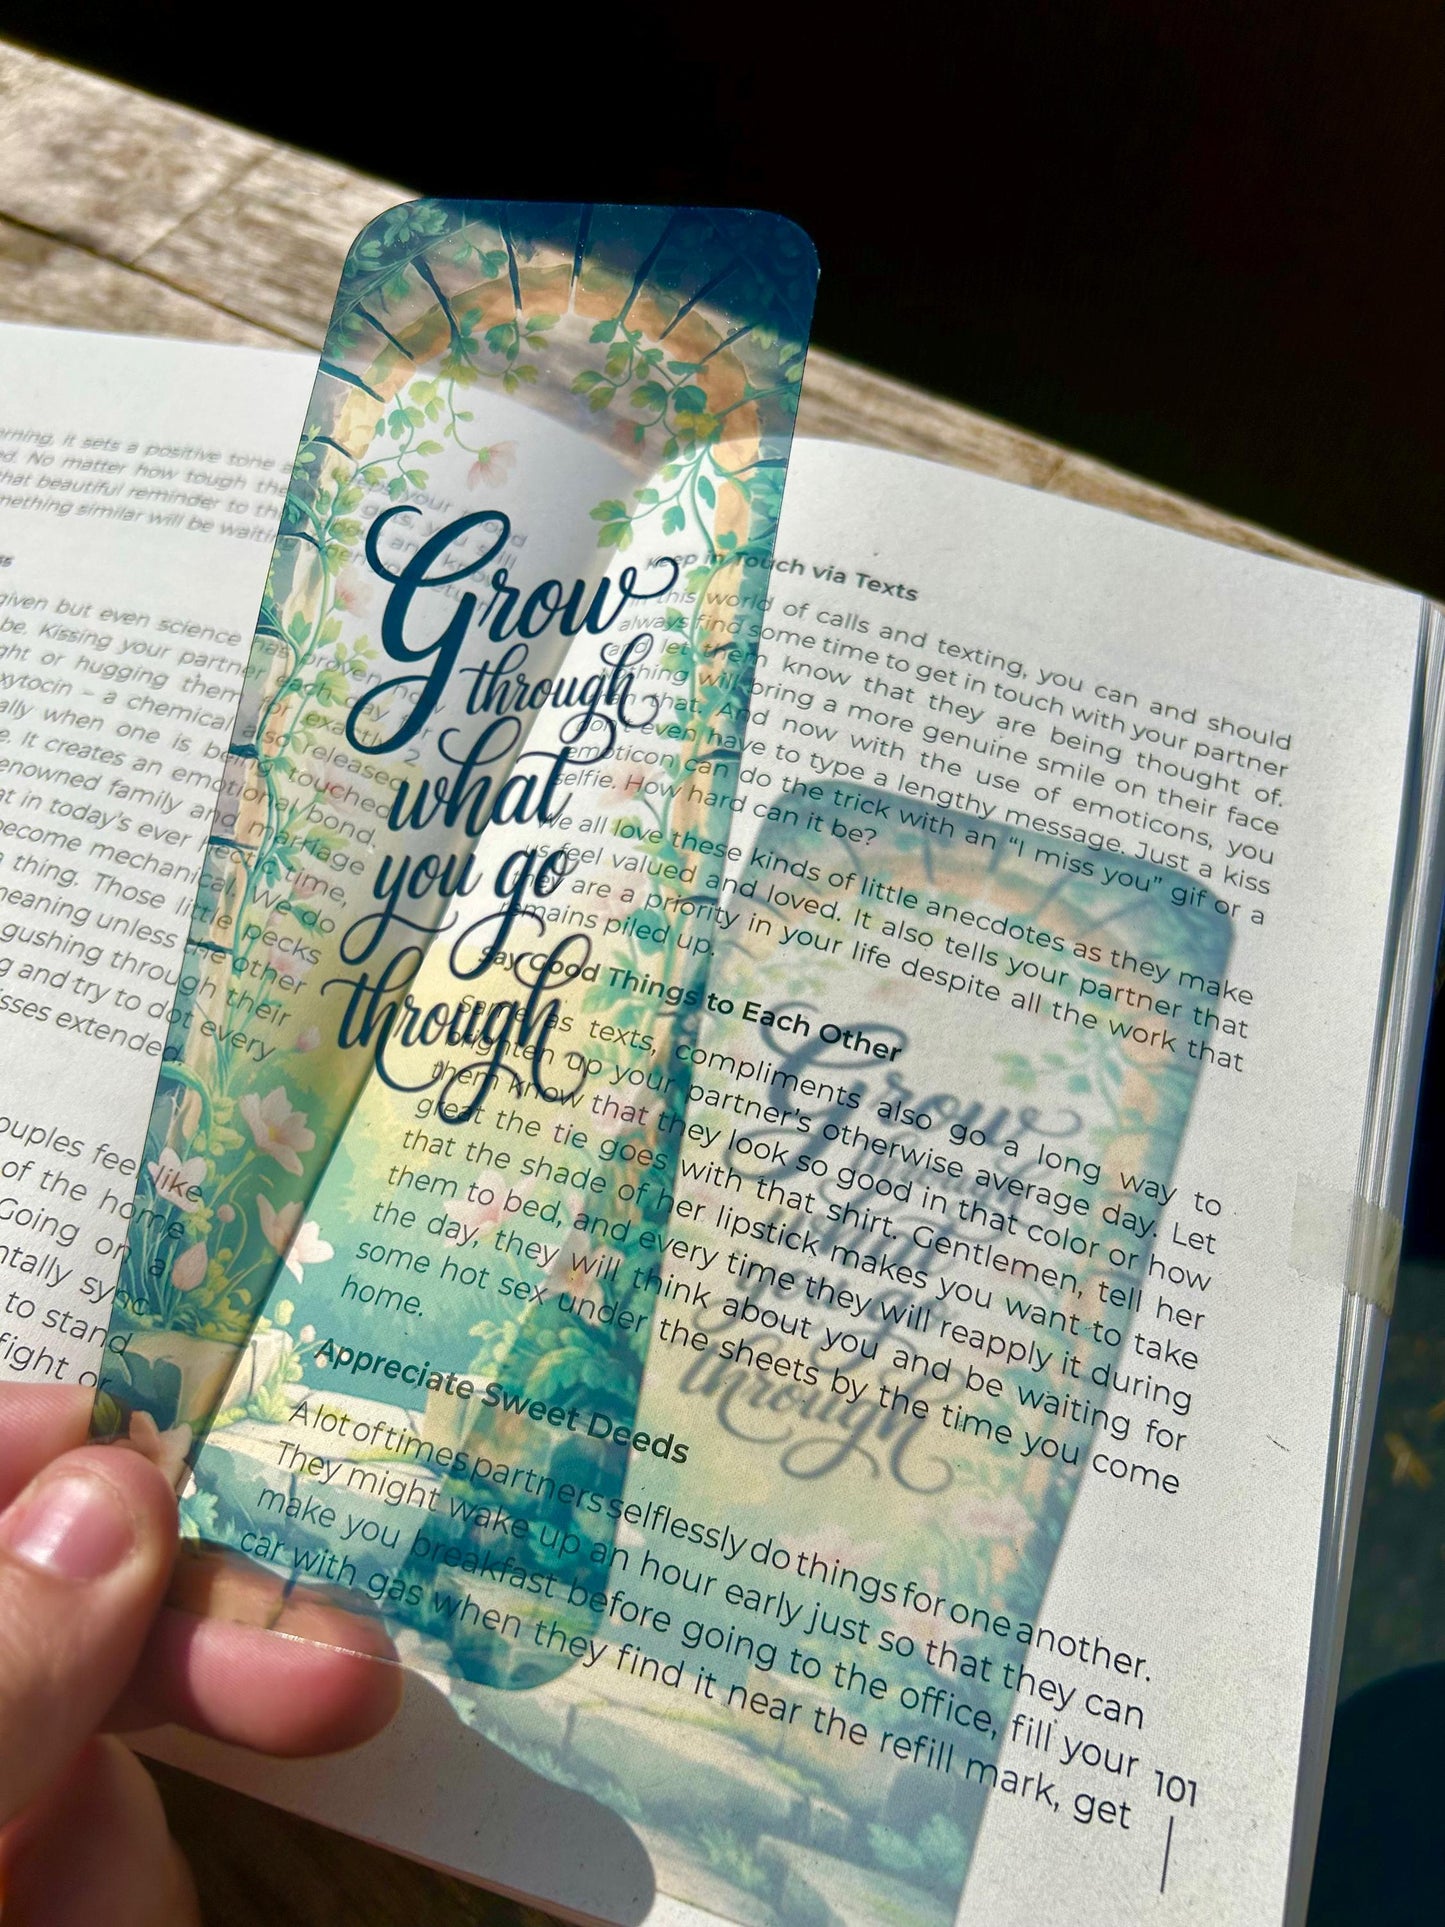 Grow
through
what
you go
through
rning, it sets a positive tone
ed. No matter how tough the
hat beautiful reminder to th
mething similar will be waitin
ss
given but even science has proven how
be. Kissing your partner each day for
ght or hugging them for exactly 2
xytocin – a chemical also released
ally when one is being touched
e. It creates an emotional bond.
enowned family and marriage
at in today's ever hectic time,
become mechanical. We do
thing. Those little pecks
meaning unless the other
gushing through their
g and try to dot every
isses extended
ouples feel like
of the home
Going on a
ntally sync
to stand
fight or
Keep in Touch via Texts
In this world of calls and texting, you can and should
always find some time to get in touch with your partner
and let them know that they are being thought of.
Nothing will bring a more genuine smile on their face
than that. And now with the use of emoticons, you
don't even have to type a lengthy message. Just a kiss
emoticon can do the trick with an "I miss you" gif or a
selfie. How hard can it be?
We all love these kinds of little anecdotes as they make
us feel valued and loved. It also tells your partner that
they are a priority in your life despite all the work that
remains piled up.
Say Good Things to Each Other
Same as texts, compliments also go a long way to
brighten up your partner's otherwise average day. Let
them know that they look so good in that color or how
great the tie goes with that shirt. Gentlemen, tell her
that the shade of her lipstick makes you want to take
them to bed, and every time they will reapply it during
the day, they will think about you and be waiting for
some hot sex under the sheets by the time you come
home.
Appreciate Sweet Deeds
A lot of times partners selflessly do things for one another.
They might wake up an hour early just so that they can
make you breakfast before going to the office, fill your
car with gas when they find it near the refill mark, get
101